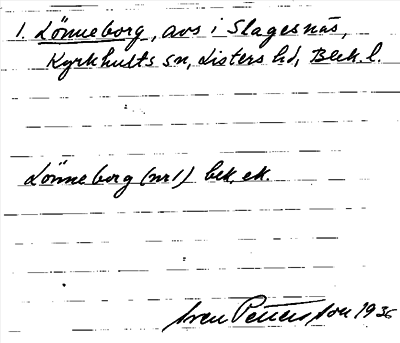 1. Lönneborg, avs i Slagesnäs,
Kyrkhults sn, Listers hd, Blek. l.
Lönneborg (nr1) bek, ek.
Sven Pettersson 1936